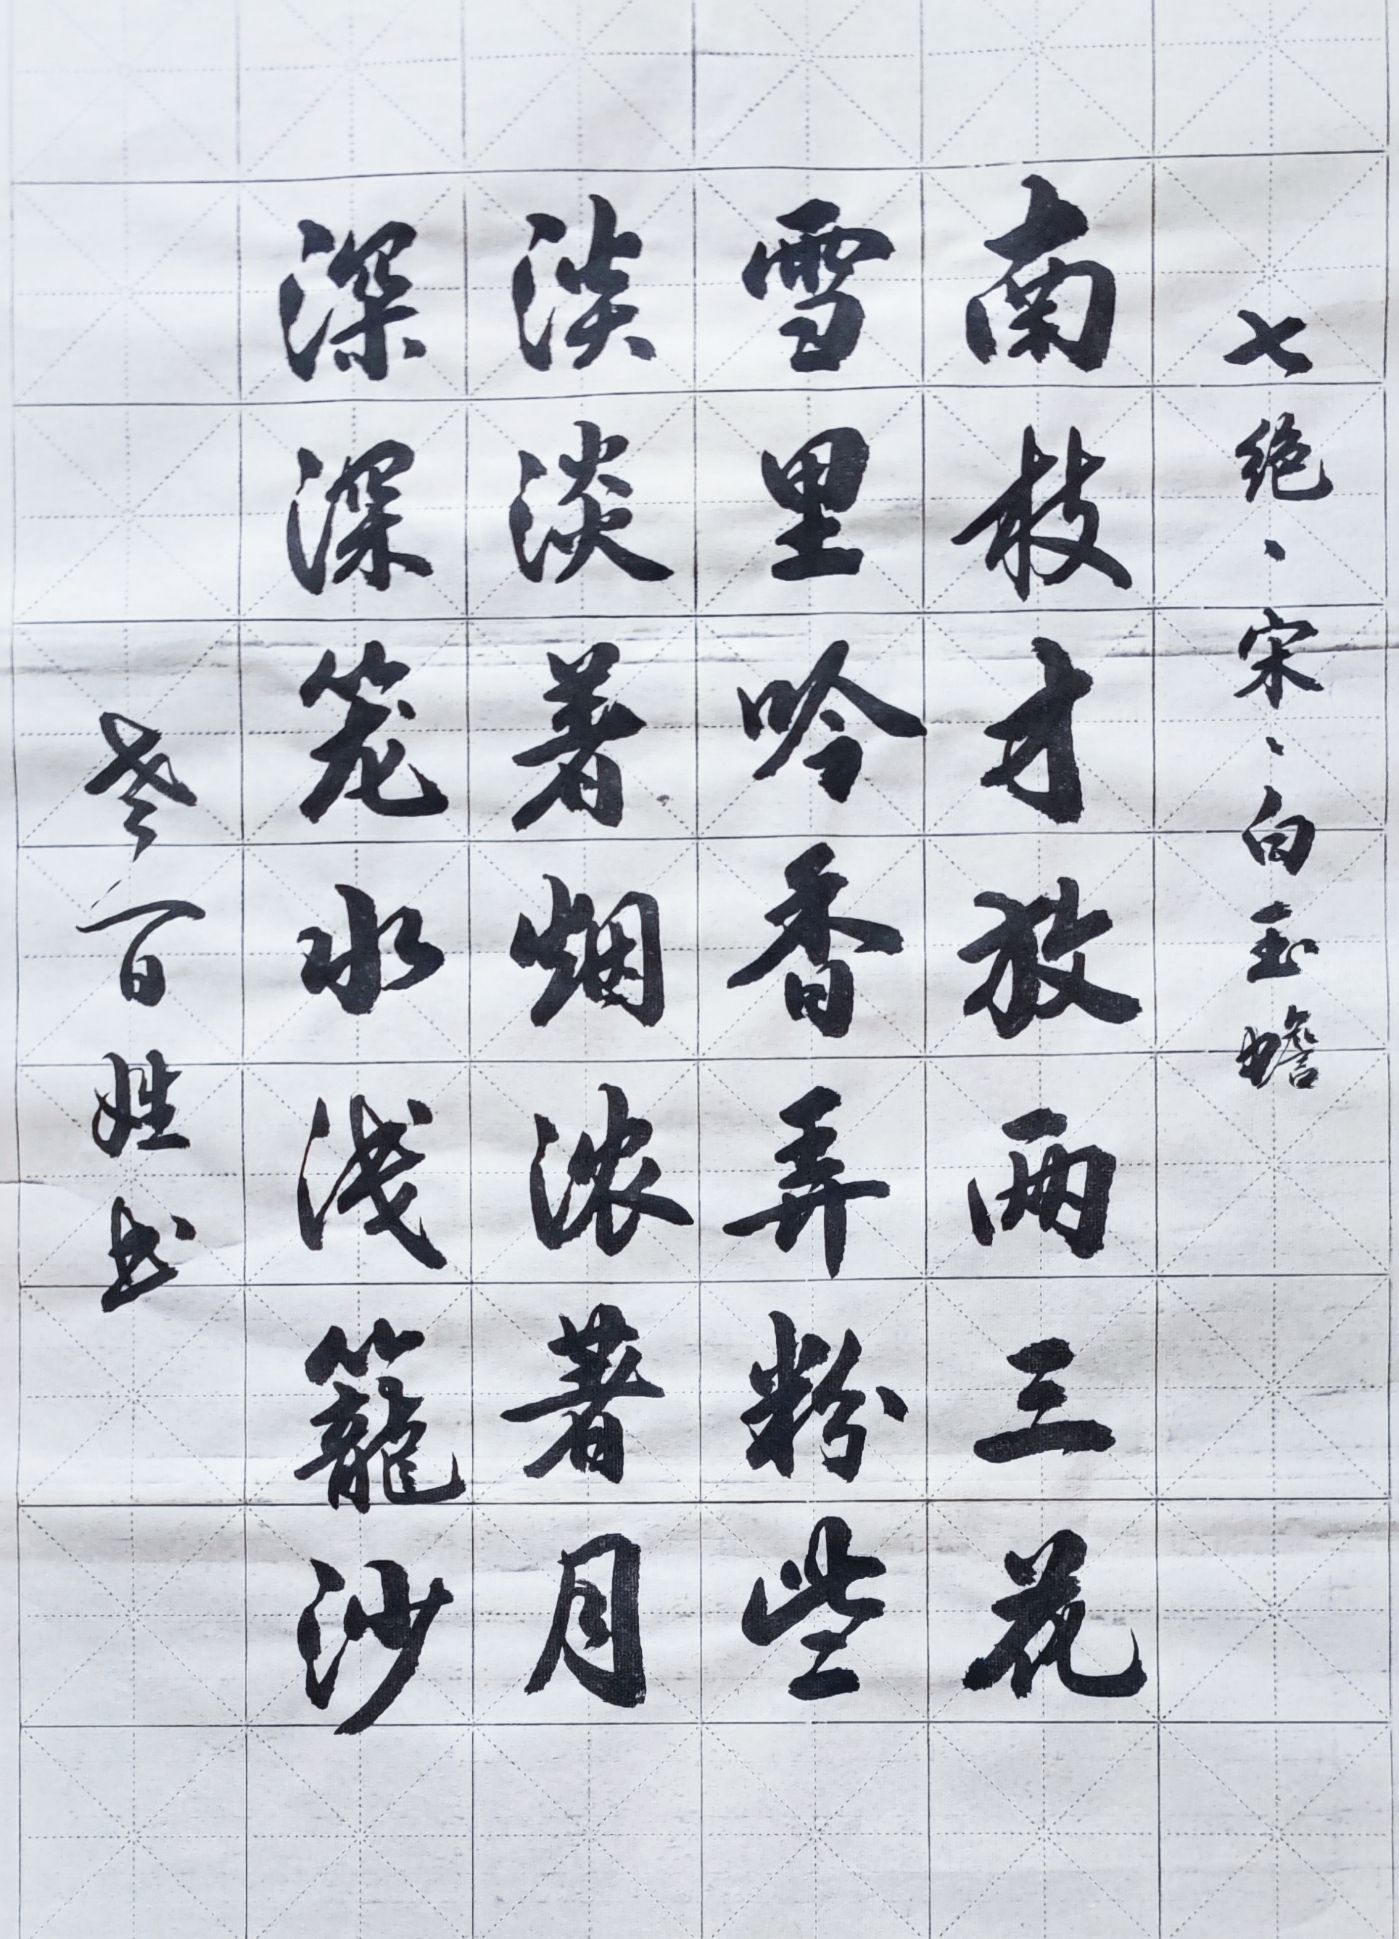 七绝、宋、白玉蟾
南枝才放两三花
雪里吟香弄粉些
淡淡著烟浓著月
深深笼水浅籠沙
老百姓书